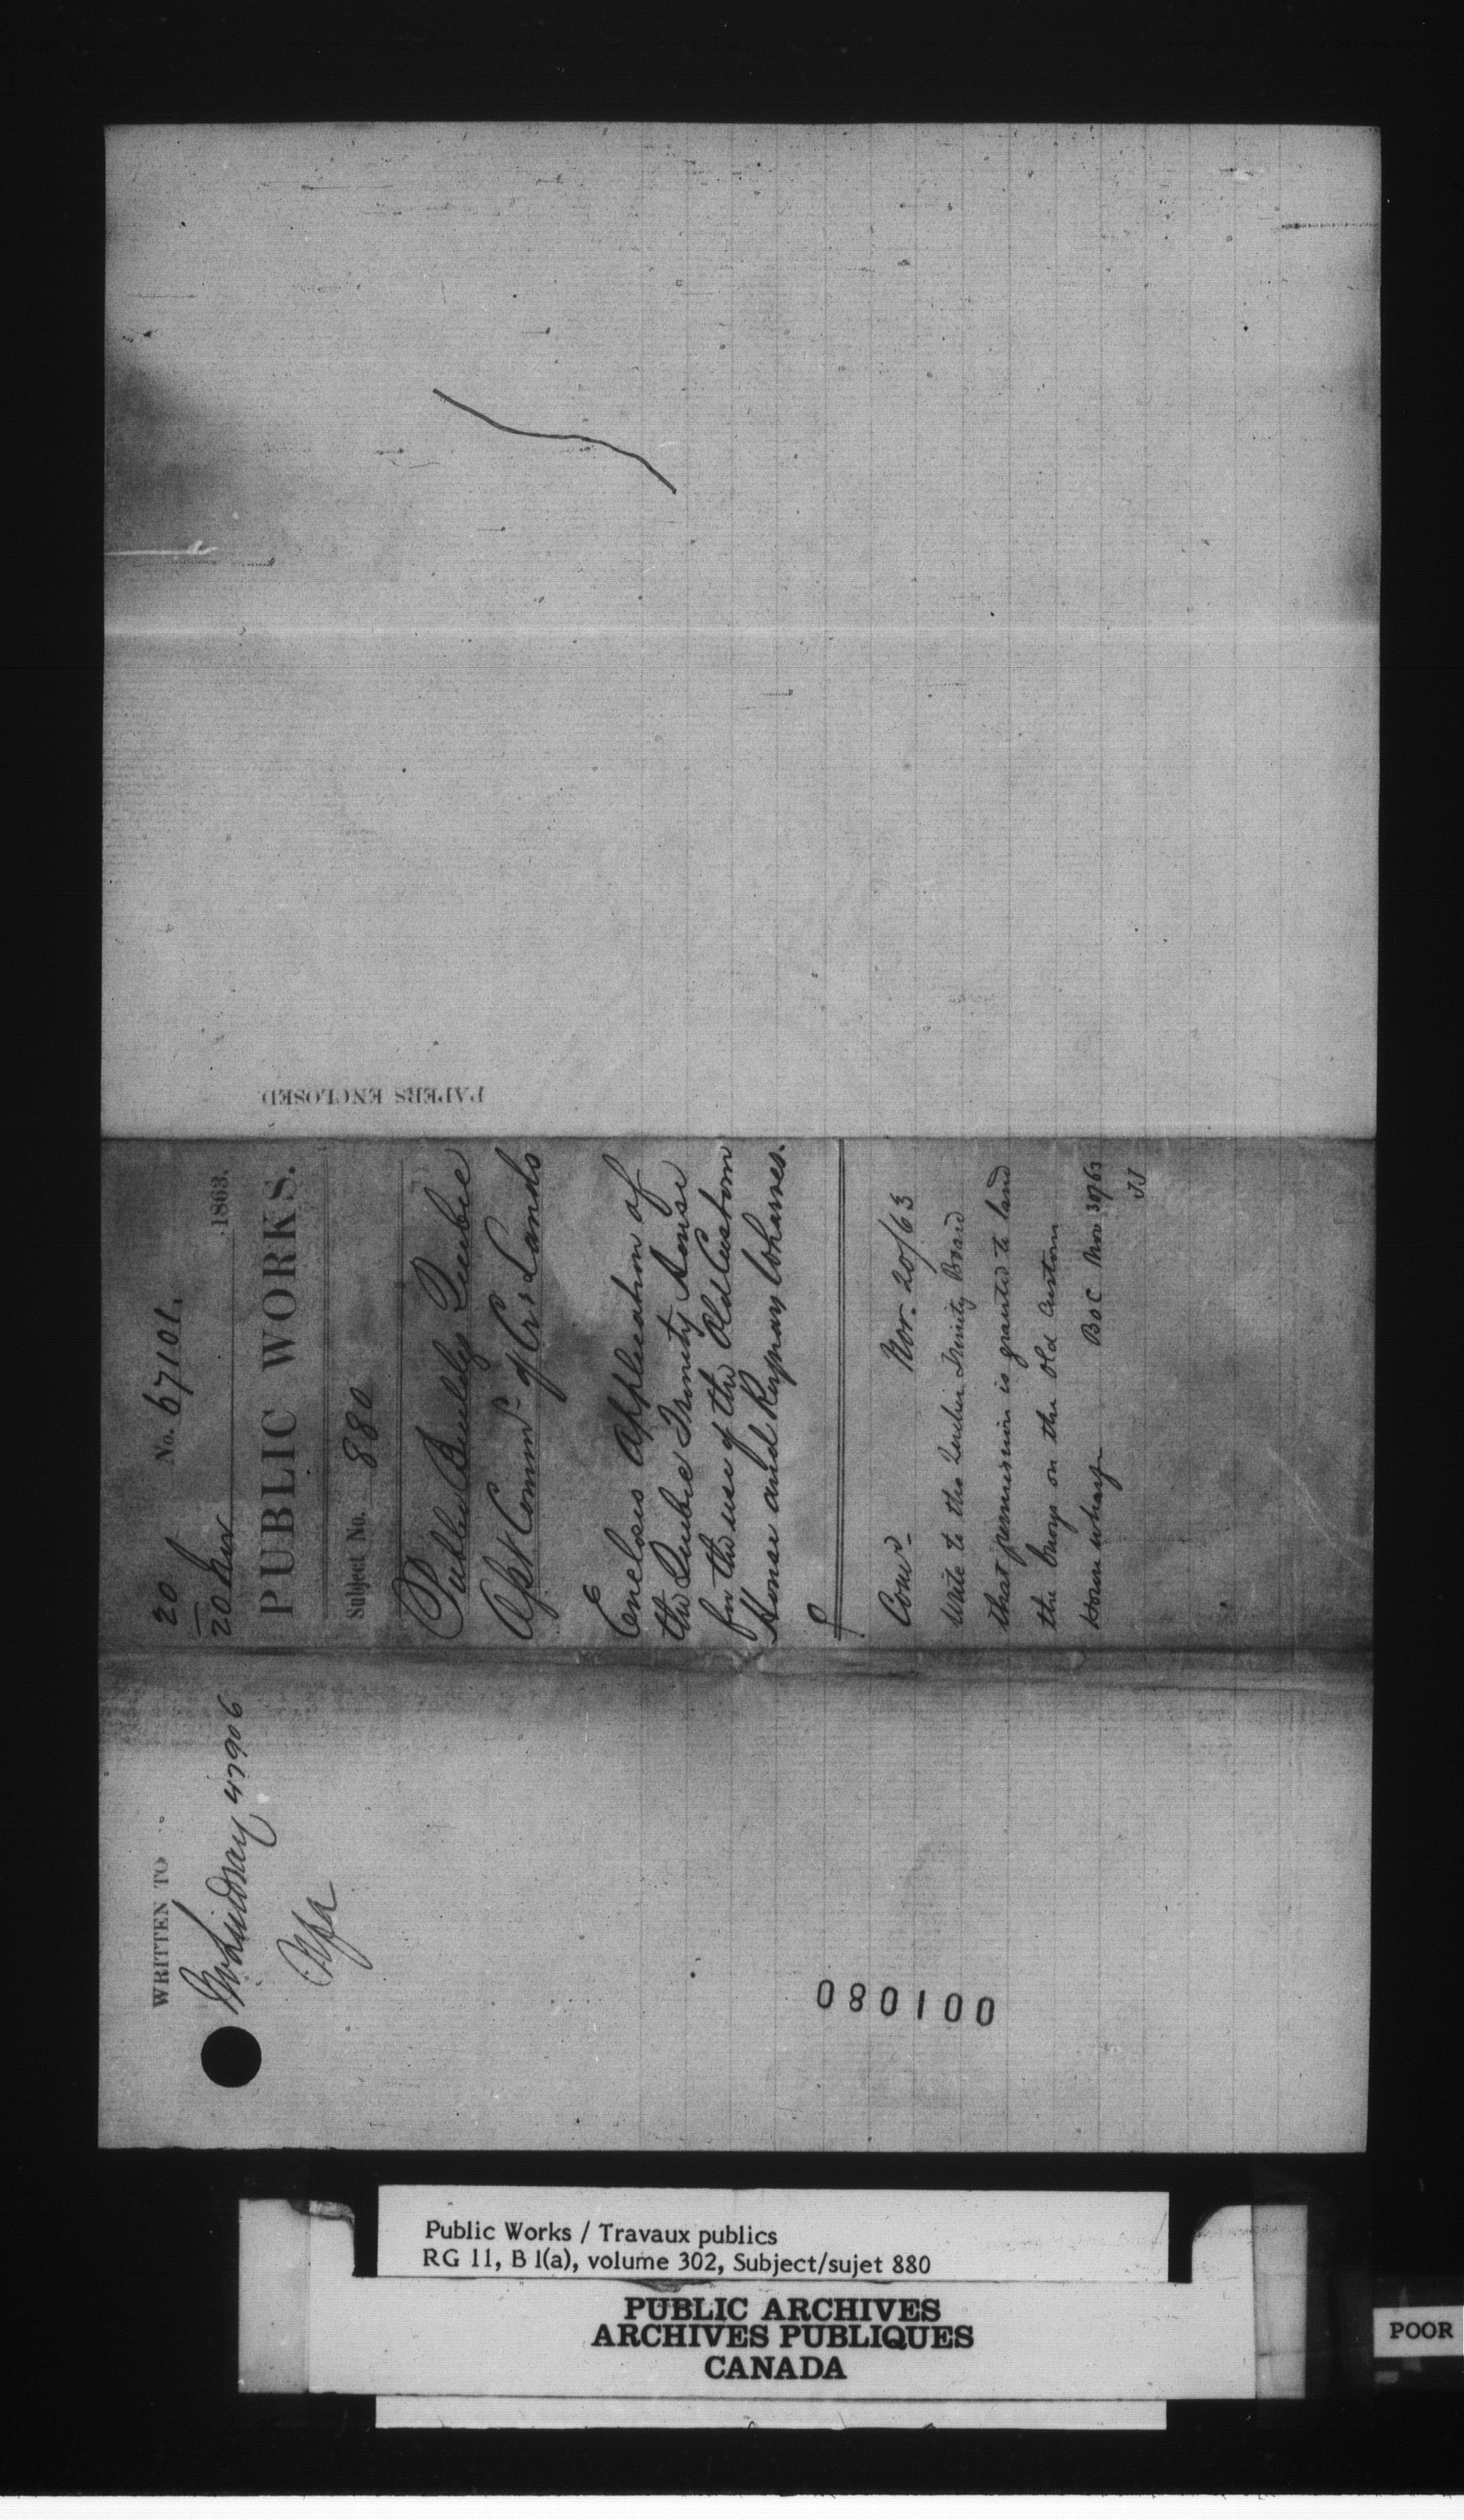 20
20 Nov 1863.
No. 67101.
PUBLIC WORKS.
Subject No. 880
Public Buildgs Quebec
Asst Commr. of Crn Lands
Encloses application of
the Quebec Trinity House
for the use of the Old Custom
House and Regnay Wharves.
Comd. Nov. 20/63
Write to the Quebec Trinity Board
that permission is granted to land
the buoys on the old Custom
House wharf
BOC Nov 30/63
PAPERS ENCLOSED
WRITTEN TO
Lindsay 47906
001080
Public Works / Travaux publics
RG 11, B 1(a), volume 302, Subject/sujet 880
PUBLIC ARCHIVES
ARCHIVES PUBLIQUES
CANADA
POOR